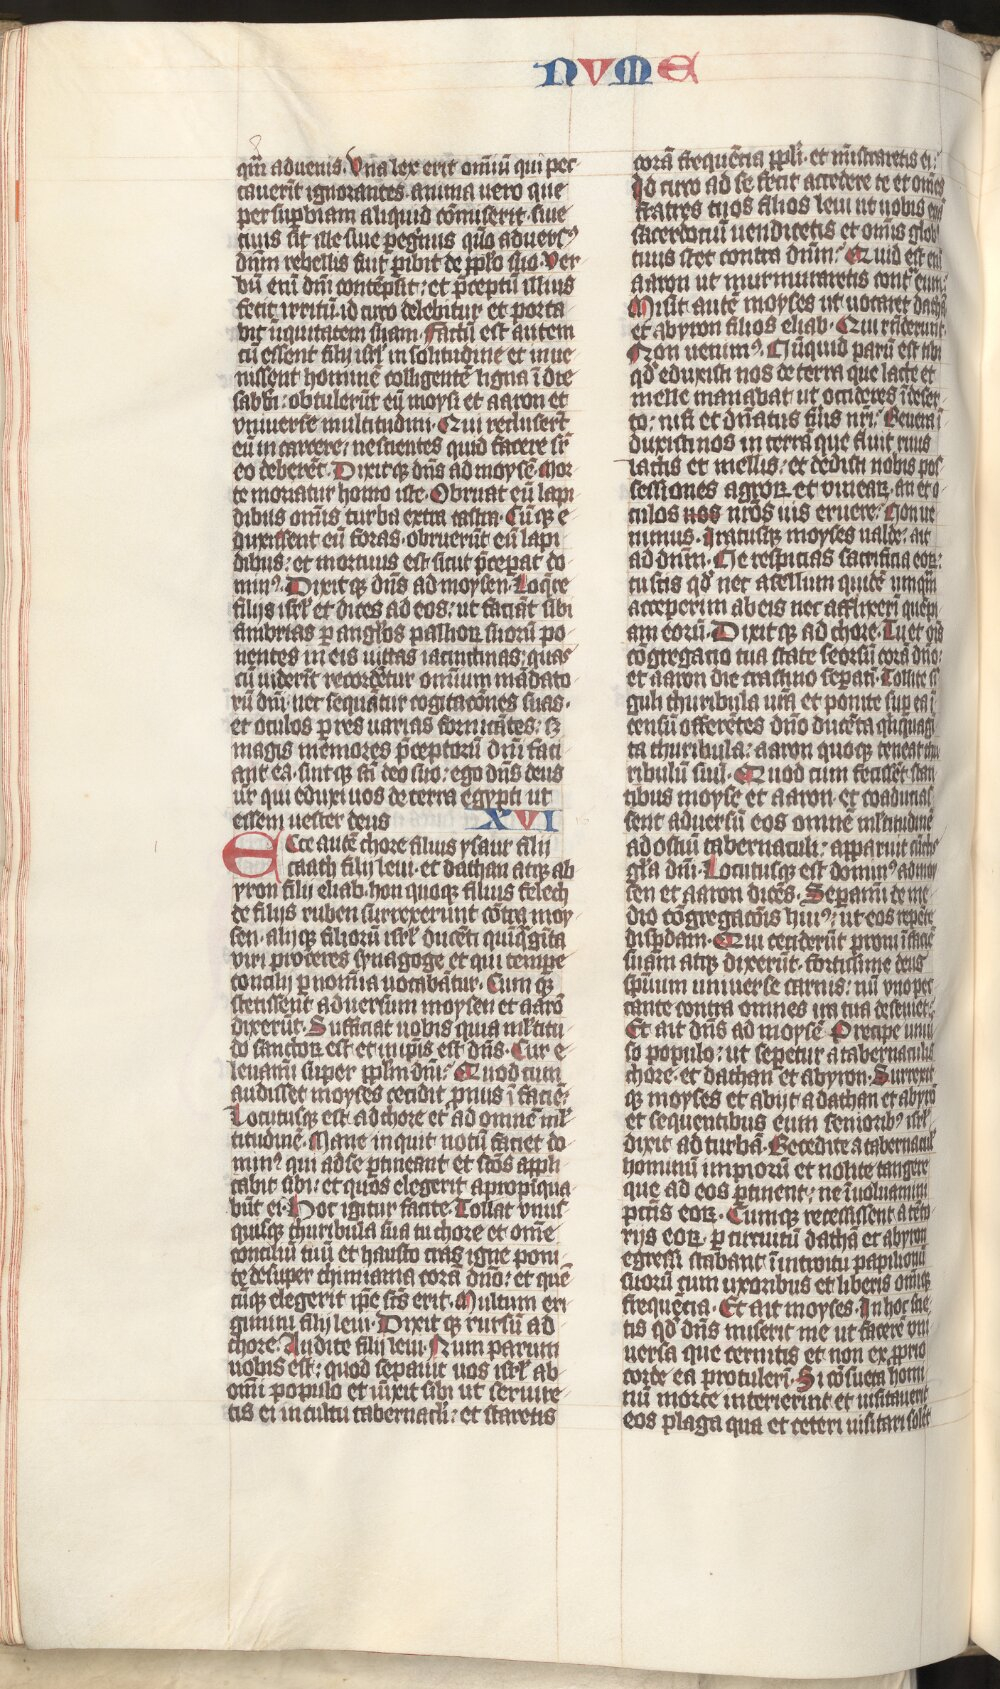 NVME
qua͂ aduenis. Vna lex erit omniu͂ qui pec
cauerīt ignorantes. anima uero que
per supbiam aliquid co͂miserit. siue
ciuis sit ille siue peg͂nus quo͂ aduersꝰ
dn͂m rebellis fuit pibit de ppl͂o suo. Ver
bu͂ eni͂ dn͂i conte͂psit: et p͂ceptu͂ illius
fecit irritu͂. id circo delebitur et porta
bit iniquitatem suam. Factu͂ est autem
cu͂ essent filij isrl͂ in solitudine et inue
nissent homine͂ colligente͂ ligna i͂ die
sabb͂i: obtuleru͂t eu͂ moysi et aaron et
vniuerse multitudini. Qui recluseru͂t
eu͂ in carcere: nescientes quid facere sr͂
eo debere͂t. Dixitqꝫ dn͂s ad moyse͂. Mor
te moriatur homo iste. Obruat eu͂ lapi
dibus omn͂is turba extra castra. Cu͂qꝫ e
duxissent eu͂ foras. obrueru͂t eu͂ lapi
dibus: et mortuus est sicut p͂ceperat do
minꝰ. Dixitqꝫ dn͂s ad moysen. Loqr͂e
filijs isrl͂ et dices ad eos: ut facia͂t sibi
fimbrias p angl͂os pallioꝝ suoru͂ po
nentes in eis uittas iacinctinas: quas
cu͂ uideri͂t recorde͂tur omnium ma͂dato
ru͂ dn͂i. nec sequatur cogitaco͂nes suas.
et oculos p res uarias fornica͂tes: sꝫ
magis memores p͂ceptoru͂ dn͂i faci
ant ea. sintqꝫ sc͂i deo suo: ego dn͂s deus
ur͂ qui eduxi uos de terra egypti ut
essem uester deus XVI
Ecce aute͂ chore filius ysaur filij
caath filij leui. et dathan atqꝫ ab
yron filij eliab. hon quoqꝫ filius felech
de filijs ruben surrexerunt co͂tra moy
sen. alijqꝫ filioru͂ isrl͂ duce͂ti qui͂q͂gi͂ta
viri proceres synagoge et qui tempe
concilij p nomi͂a uocaba͂tur. Cumqꝫ
stetissent aduersum moysen et aaro͂
dixeru͂t. Sufficiat uobis quia ml͂titu
do sanctoꝝ est et in ip͂is est dn͂s. Cur e
leuami͂ super pplm dn͂i: Quod cum
audisset moyses cecidit p͂nus i͂ facie͂:
Locutusqꝫ est ad chore et ad omne͂ ml͂
titudine͂. Mane inquit notu͂ faciet do
minꝰ qui ad se ptineant et sc͂os appli
cabit sibi: et quos elegerit apropi͂qua
bu͂t ei. Hoc igitur facite. Tollat vnus
quisqꝫ thuribula sua tu chore et om͂e
conciliu͂ tuu͂ et hausto cras igne poni
te desuper thimiama cora͂ dn͂o: et que͂
cu͂qꝫ elegerit ip͂e sc͂s erit. Multum eri
gimini filij leui. Dixitqꝫ rursu͂ ad
chore. Audite filij leui. Num parum
uobis est: quod sepauit uos isrl͂ ab
omi͂ populo et iu͂xit sibi ut seruire
tis ei in cultu tabernacl͂i: et staretis
cora͂ freque͂cia ppl͂i. et mi͂straretis ei:
Id circo ad se fecit accedere te et omn͂es
fratres tuos filios leui ut uobis eni͂
sacerdociu͂ uendicetis et omn͂is globꝰ
tuus stet contra dn͂m: Quid est eni͂
aaron ut murmuraretis cont͂ eum:
Misit aute͂ moyses ut uocaret datha͂
et abyron filios eliab. Qui r͂nderunt.
Non uenimꝰ. Nu͂quid paru͂ est tibi
qd͂ eduxisti nos de terra que lacte et
melle manabat ut occideres i͂ deser
to: nisi et dn͂atus fu͂is nr͂i: Reuera i͂
duxisti nos in terra͂ que fluit riuis
lactis et mellis: et dedisti nobis pos
sessiones agroꝝ et vineaꝝ. an et o
culos uos nr͂os uis eruere: Non ue
nimus. Iratusqꝫ moyses ualde. ait
ad dn͂m. Ne respicias sacrificia eoꝝ:
tu scis qd͂ nec asellum quide͂ umqua͂
acceperim ab eis nec afflixeri͂ que͂pi
am eoru͂. Dixitqꝫ ad chore. Tu et om͂s
co͂gregatio tua state seorsu͂ cora͂ dn͂o:
et aaron die crastino sepati͂. Tollite si͂
guli thuribula ur͂a et ponite sup ea i͂
censu͂ offere͂tes dn͂o duce͂ta qi͂quagi͂
ta thuribula: aaron quoqꝫ teneat thu
ribulu͂ suu͂. Quod cum fecisse͂t stan
tibus moyse et aaron. et coaceruas
sent aduersu͂ eos omne͂ ml͂titudine͂
ad ostiu͂ tabernaculi: apparuit cu͂ctis
gl͂a dn͂i. Locutusqꝫ est dominꝰ ad moy
sen et aaron dice͂s. Separami͂ de me
dio co͂gregaco͂nis huiꝰ: ut eos repe͂te
dispdam. Qui cecideru͂t proni i͂ facie͂
suam atqꝫ dixeru͂t. fortissime deus
spirituum uniuerse carnis: nu͂ vno pec
cante contra omnes ira tua deseuiet:
Et ait dn͂s ad moyse͂. Precipe vniu͂
so populo: ut sepetur a tabernaculis
chore. et dathan et abyron. Surrexit
qꝫ moyses et abijt ad dathan et abyro͂
et sequentibus eum senioribꝰ isrl͂
dixit ad turba͂. Recedite a tabernacul͂
hominu͂ impioru͂ et nolite tangere
que ad eos ptinent: ne i͂uoluamini
pcc͂is eoꝝ. Cumqꝫ recessissent a te͂to
rijs eoꝝ. p circuitu͂ datha͂ et abyron
egressi stabant i͂ introitu papilionu͂
suoru͂ cum uxoribus et liberis omniqꝫ
freque͂cia. Et ait moyses. In hoc scie
tis qd͂ dn͂s miserit me ut facere͂ vni
uersa que cernitis et non ex pprio
corde ea protuleri͂. Si co͂sueta homi
nu͂ morte interierint et uisitauerit
eos plaga qua et ceteri uisitari sole͂t